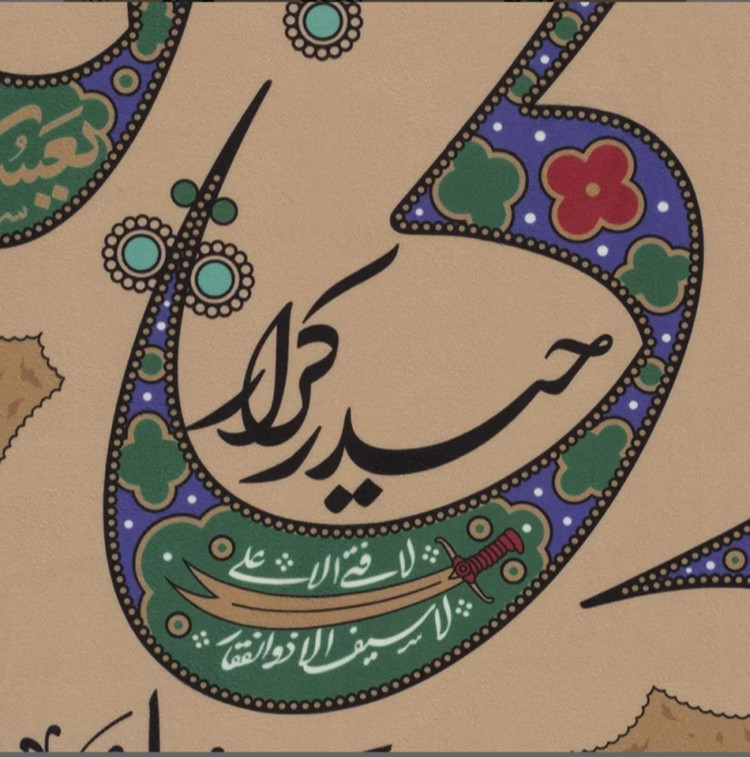 حیدر کرار
لا فتی الا علی
لا سیف الا ذوالفقار